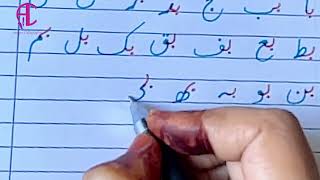 با بب بج بد بر
بط بع بف بق بک بل بم
بن بو بہ بھ بی